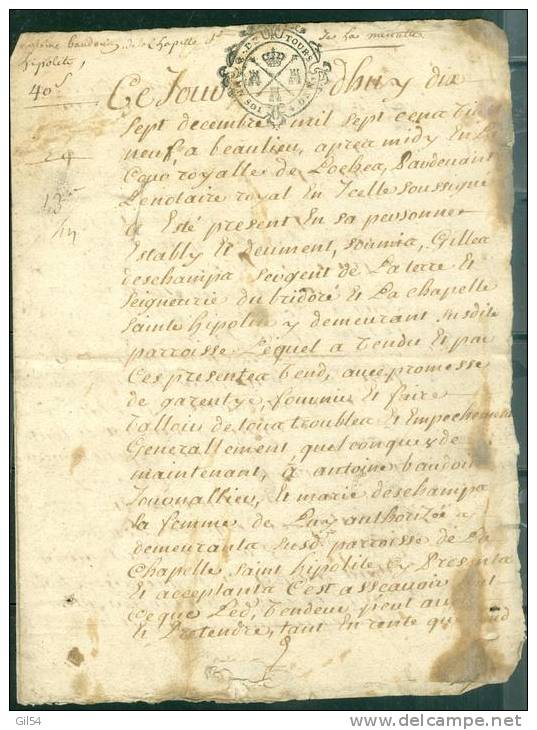 antoine baudouin de la Chapelle St
hipolite,
40s
TOURS
Ce Jourdhuy dix
Sept decembre mil Sept cent
neuf, a beaulieu, apres midy En la
Cour royalle de Loches, Pardevant
Le notaire royal En Icelle Soussigné
a Esté present En sa personne
Estably Et deument, Soumis, Gilles
deschamps Sergent de La terre Et
Seigneurie du bridoré Et La chapelle
Sainte hipolite y demeurant Susdite
parroisse. Lequel a Vendu Et par
Ces presentes Vend, avec promesse
de garentye, fournir Et faire
Valloir de tous troubles Et Empechement
Generallement quelconques de
maintenant, a antoine baudouin
Journallier, Et marie deschamps
Sa femme de Luy authorizée
demeurants Susd. parroisse de La
Chapelle Saint hipolite cy Presents
Et acceptants C'est asseavoir
Ce que Led. Vendeur peut
Et Pretendre, tant En rente que
Gil54
www.delcampe.net